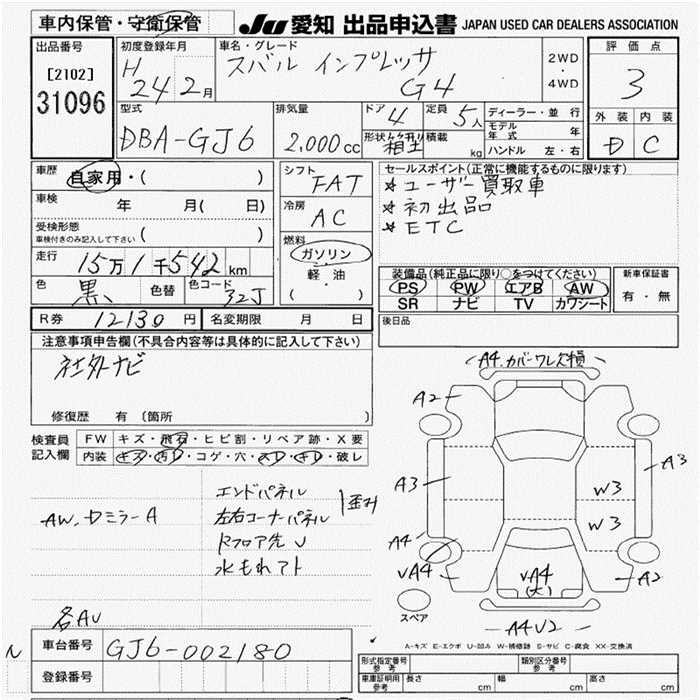 車内保管・守衛保管
JU 愛知 出品申込書 JAPAN USED CAR DEALERS ASSOCIATION
出品番号
[2102]
31096
初度登録年月
H 24 2月
車名・グレード
スバル インプレッサ
G4
2WD
・
4WD
評価点
3
外装 内装
D C
型式
DBA-GJ6
排気量
2,000cc
ドア
4
定員
5人
形状 箱型
積載
kg
ディーラー・並行
モデル年式 年
ハンドル 左・右
車歴
自家用・( )
車検
年 月( 日)
受検形態
車検付きのみ記入して下さい ( )
走行
15万1千542km
色
黒
色替
色コード
32J
シフト
FAT
冷房
AC
燃料
ガソリン
軽油
( ・ )
セールスポイント(正常に機能するものに限ります)
☆ユーザー買取車
☆初出品
☆ETC
装備品(純正品に限り○をつけてください)
PS PW エアB AW
SR ナビ TV カワシート
新車保証書
有・無
後日品
R券 12130円
名変期限 月 日
注意事項申告欄(不具合内容等は具体的に記入して下さい)
社外ナビ
修復歴 有 〔箇所
検査員
記入欄
FW キズ・飛石・ヒビ割・リペア跡・X要
内装 キズ・汚レ・コゲ・穴・スレ・キレ・破レ
AW,ドミラーA
エンドパネル
左右コーナーパネル
歪み
Rフロア先 U
水もれアト
各AU
A4.カバーワレ欠損
A2
A3
A3
W3
W3
A4
VA4
VA4
(大)
A2
スペア
A4U2
A-キズ E-エクボ U-凹み W-補修跡 S-サビ C-腐食 XX-交換済
N
車台番号 GJ6-002180
登録番号
形式指定番号
参考
類別区分番号
参考
車庫証明用
参考
長さ cm 幅 cm 高さ cm